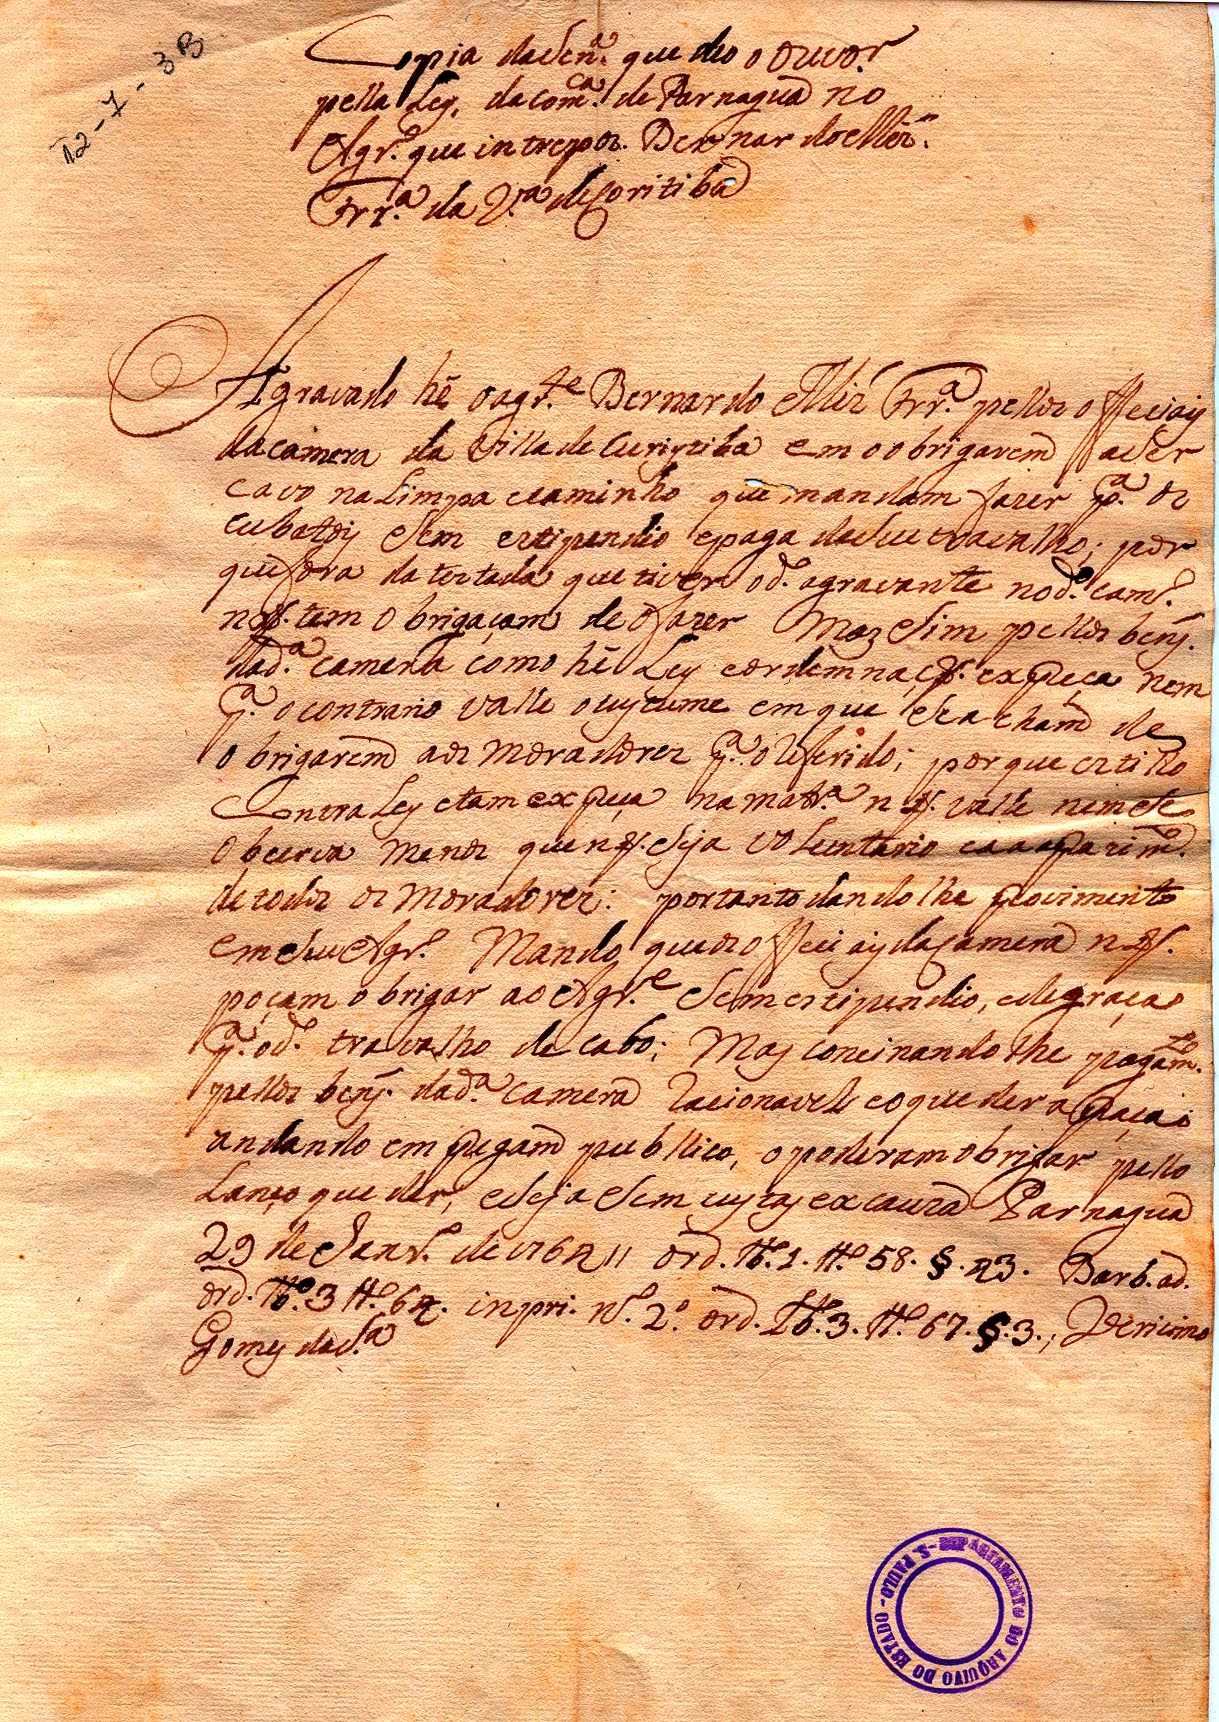 12-7-3B
Copia da Sen.ª que deo o ouv.or
pella Ley, da com.ca de Parnaguâ no
Agr.º que intrepos. Bernardo Miz͂
Frr.ª da V.ª de Coritiba
Agravado hê o agr.te Bernardo Miz͂ Frr.ª pellos officiais
da camera da Villa de Curiytiba em o obrigarem fazer
cavo na Limpa e caminho que mandam fazer p.ª os
cubatois sem estipendio e paga de seu travalho; por
que fora da testada que tiver o d.º agravante no d.º cam.º
não tem obrigaçam de o fazer Mas sim pellos bens
da d.ª camera como hê Ley e ordemnação expreça nem
p.ª o contrario valle o custume em que se acham de
obrigarem aos moradores p.ª o referido; porque estillo
Contra Ley e tam expreça na mat.ª não valle nem se
obcerva menos que não seja voluntario e aaprazim.to
de todos os moradores: portanto dandolhe provimento
em seu Agr.º Mando que os officiais da Camera não
poçam obrigar ao Agr.e Sem estipendio, e de graça
p.ª o d.º travalho de cabo; Mas concinandolhe pagam.to
pellos bens da d.ª camera racionavel e o que der a praça
andando em pregam publico, o poderam obrigar pello
Lanço que der, e seja sem custas ex cauza Parnaguâ
29 de Janr.º de 1764 ,, ord. L.º 1. tt.º 58. §. 43. Barb. ad.
ord. L.º 3 tt.º 64. in pri. n.º 2.º ord. L.º 3. tt.º 67. §. 3.; Jeronimo
Gomes da S.ª
DEPARTAMENTO DO ARQUIVO DO ESTADO - S. PAULO -